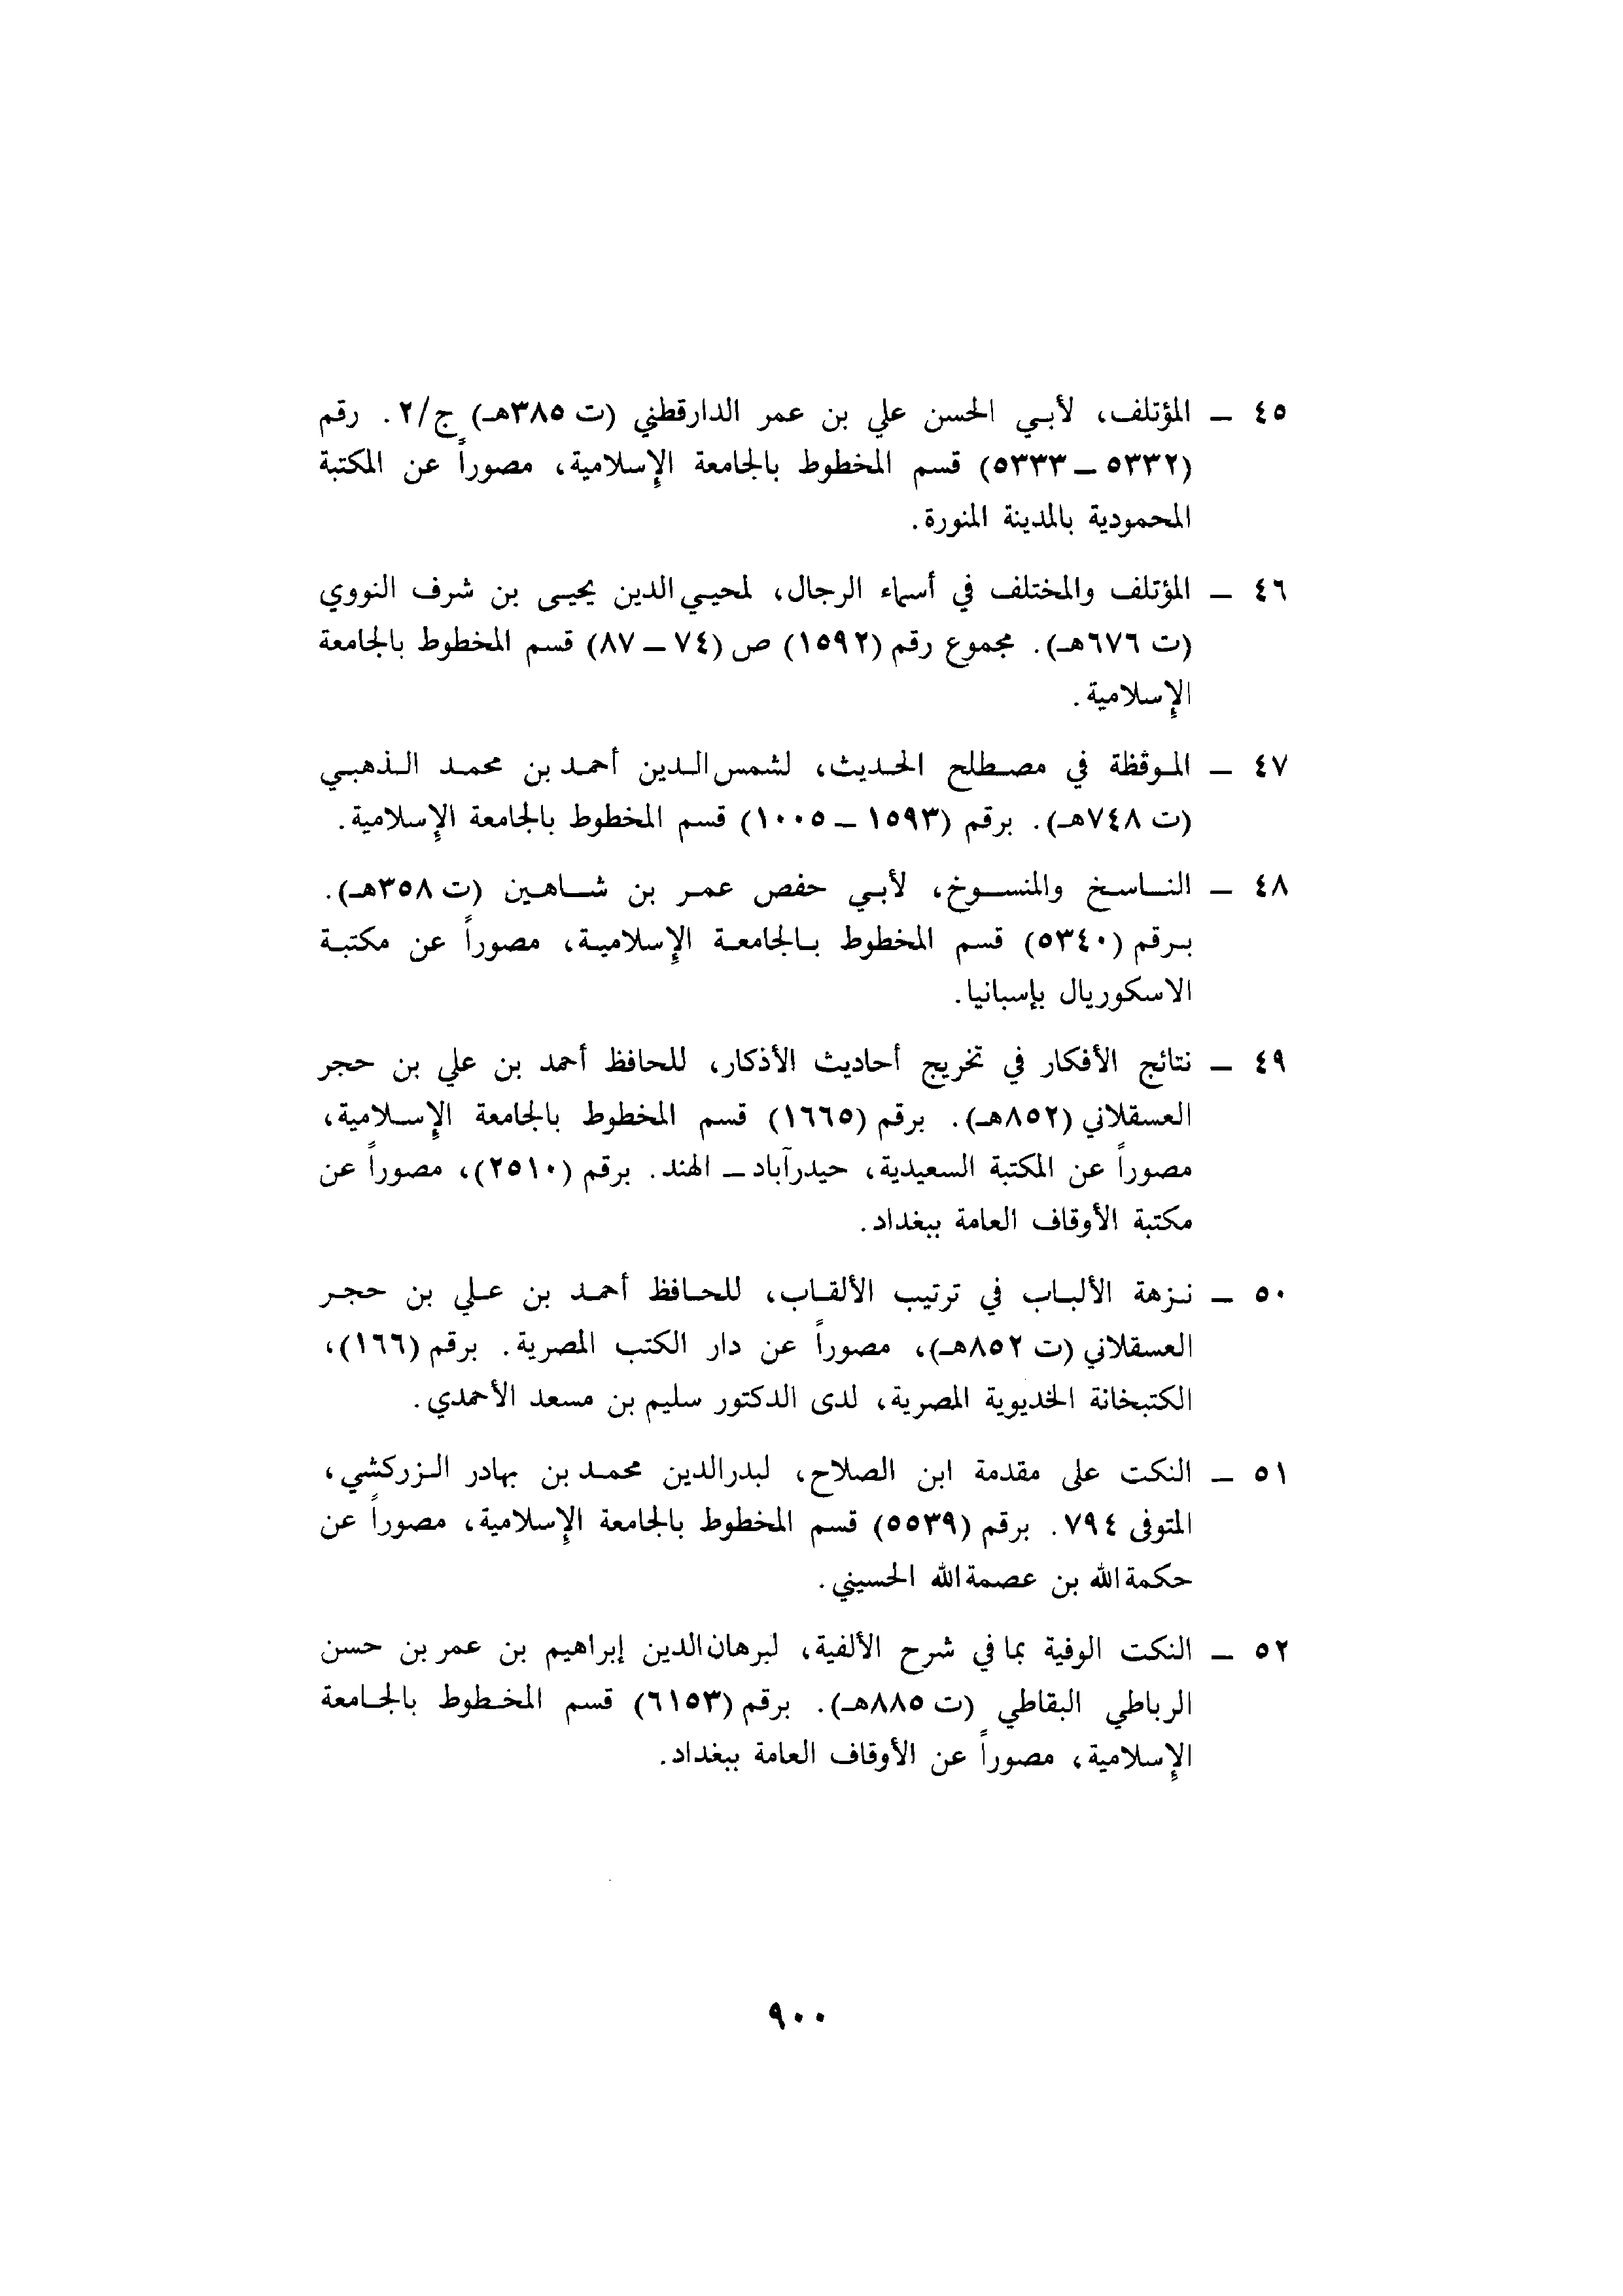 ٤٥ ــ المؤتلف، لأبي الحسن علي بن عمر الدارقطني (ت ٣٨٥هـ) ج/٢. رقم
(٥٣٣٢ ــ ٥٣٣٣) قسم المخطوط بالجامعة الإسلامية، مصوراً عن المكتبة
المحمودية بالمدينة المنورة.
٤٦ ــ المؤتلف والمختلف في أسماء الرجال، لمحيي الدين يحيى بن شرف النووي
(ت ٦٧٦هـ). مجموع رقم (١٥٩٢) ص (٧٤ ــ ٨٧) قسم المخطوط بالجامعة
الإسلامية.
٤٧ ــ الموقظة في مصطلح الحديث، لشمس الدين أحمد بن محمد الذهبي
(ت ٧٤٨هـ). برقم (١٥٩٣ ــ ١٠٠٥) قسم المخطوط بالجامعة الإسلامية.
٤٨ ــ الناسخ والمنسوخ، لأبي حفص عمر بن شاهين (ت ٣٥٨هـ).
برقم (٥٣٤٠) قسم المخطوط بالجامعة الإسلامية، مصوراً عن مكتبة
الاسكوريال بإسبانيا.
٤٩ ــ نتائج الأفكار في تخريج أحاديث الأذكار، للحافظ أحمد بن علي بن حجر
العسقلاني (٨٥٢هـ). برقم (١٦٦٥) قسم المخطوط بالجامعة الإسلامية،
مصوراً عن المكتبة السعيدية، حيدرآباد ــ الهند. برقم (٢٥١٠)، مصوراً عن
مكتبة الأوقاف العامة ببغداد.
٥٠ ــ نزهة الألباب في ترتيب الألقاب، للحافظ أحمد بن علي بن حجر
العسقلاني (ت ٨٥٢هـ)، مصوراً عن دار الكتب المصرية. برقم (١٦٦)،
الكتبخانة الخديوية المصرية، لدى الدكتور سليم بن مسعد الأحمدي.
٥١ ــ النكت على مقدمة ابن الصلاح، لبدر الدين محمد بن بهادر الزركشي،
المتوفى ٧٩٤. برقم (٥٥٣٩) قسم المخطوط بالجامعة الإسلامية، مصوراً عن
حكمة الله بن عصمة الله الحسيني.
٥٢ ــ النكت الوفية بما في شرح الألفية، لبرهان الدين إبراهيم بن عمر بن حسن
الرباطي البقاطي (ت ٨٨٥هـ). برقم (٦١٥٣) قسم المخطوط بالجامعة
الإسلامية، مصوراً عن الأوقاف العامة ببغداد.
٩٠٠